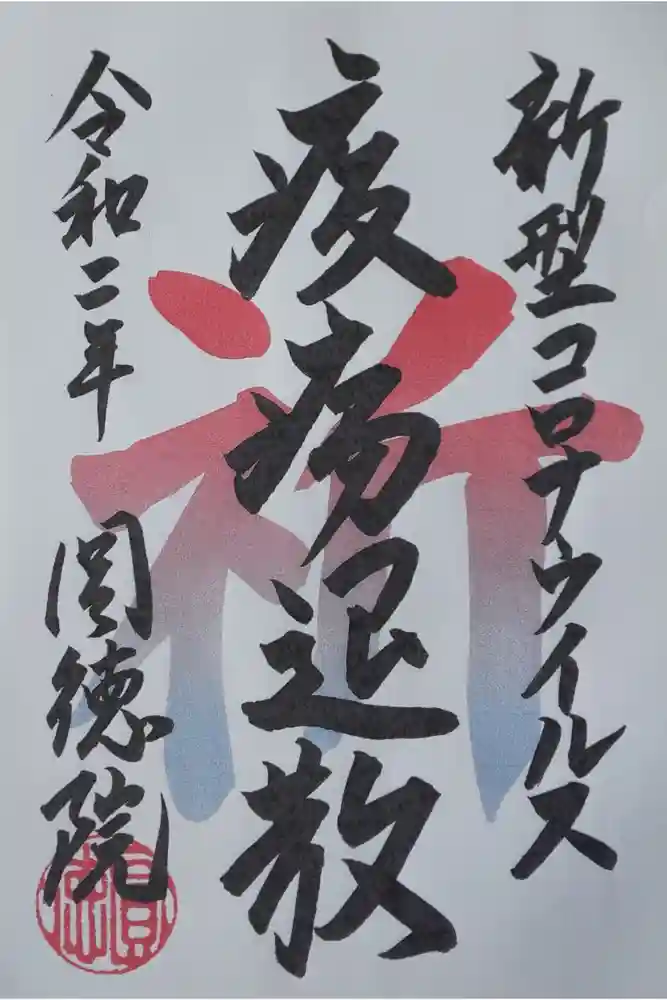 新型コロナウイルス
疫病退散
祈
令和二年
圓徳院
圓徳